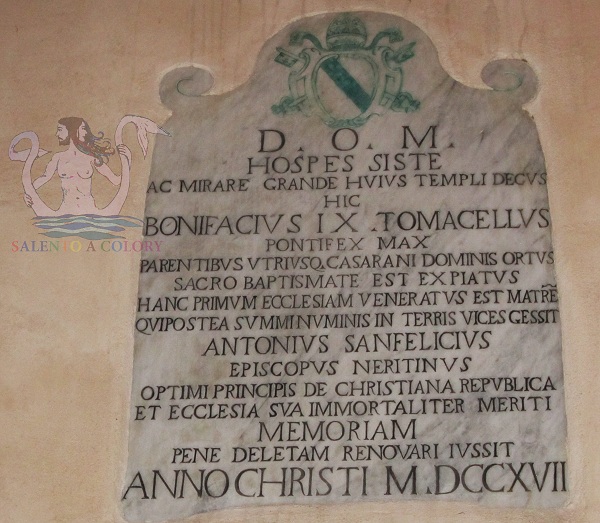 D. O. M.
HOSPES SISTE
AC MIRARE GRANDE HVIVS TEMPLI DECVS
HIC
BONIFACIVS IX TOMACELLVS
PONTIFEX MAX
PARENTIBVS VTRIVSQ. CASARANI DOMINIS ORTVS
SACRO BAPTISMATE EST EXPIATVS
HANC PRIMVM ECCLESIAM VENERATVS EST MATRE̅
QVIPOSTEA SVMMI NVMINIS IN TERRIS VICES GESSIT
ANTONIVS SANFELICIVS
EPISCOPVS NERITINVS
OPTIMI PRINCIPIS DE CHRISTIANA REPVBLICA
ET ECCLESIA SVA IMMORTALITER MERITI
MEMORIAM
PENE DELETAM RENOVARI IVSSIT
ANNO CHRISTI M.DCCXVII
SALENTO A COLORY